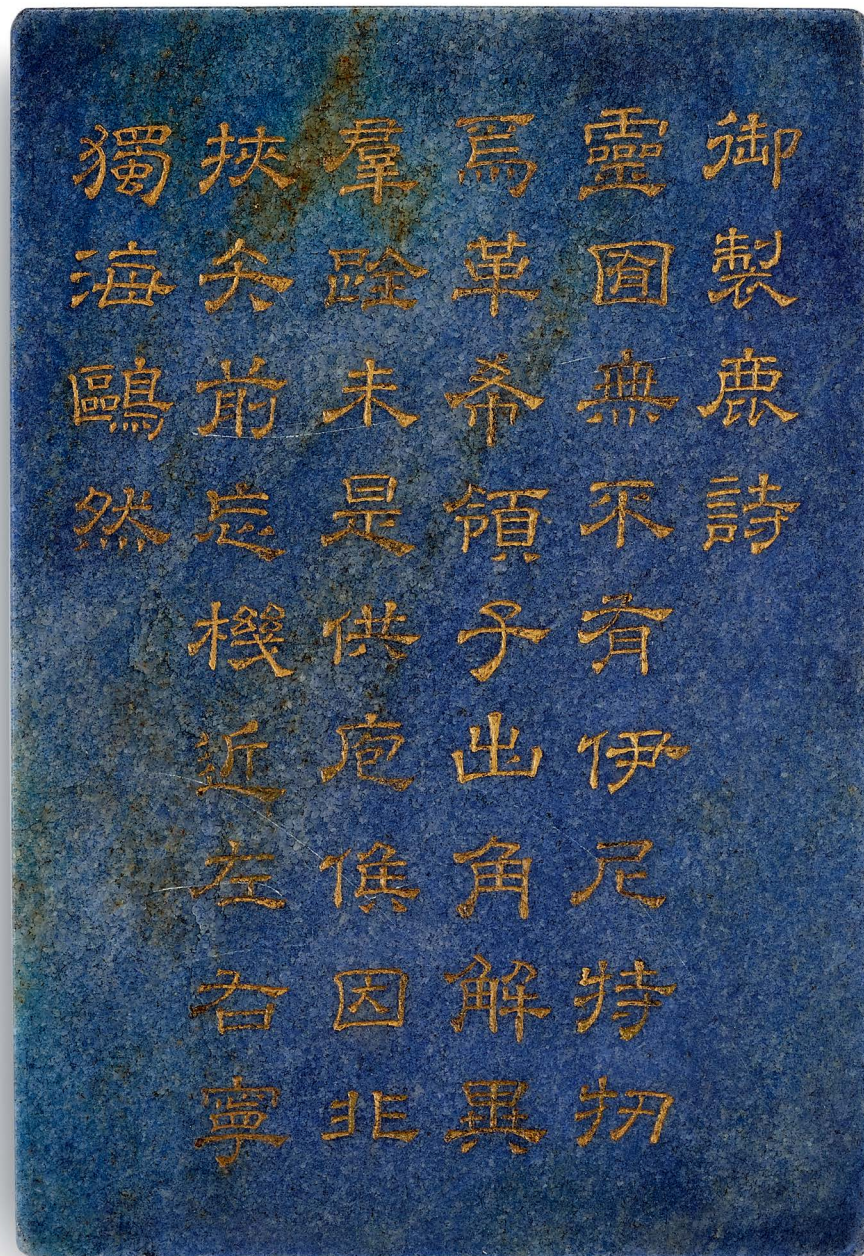 御製鹿詩
靈囿無不有伊尼特牣
焉革希領子出角解異
羣跧未是供庖因非
挾矢前忘機近左右寧
獨海鷗然